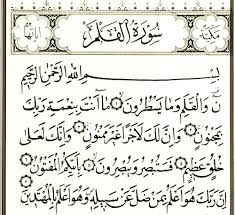 مكية سورة القلم آياتها
بسم الله الرحمن الرحيم
ن والقلم وما يسطرون ۝ ما أنت بنعمة ربك
بمجنون ۝ وإن لك لأجرا غير ممنون ۝ وإنك لعلى
خلق عظيم ۝ فستبصر ويبصرون ۝ بأييكم المفتون ۝
إن ربك هو أعلم بمن ضل عن سبيله وهو أعلم بالمهتدين